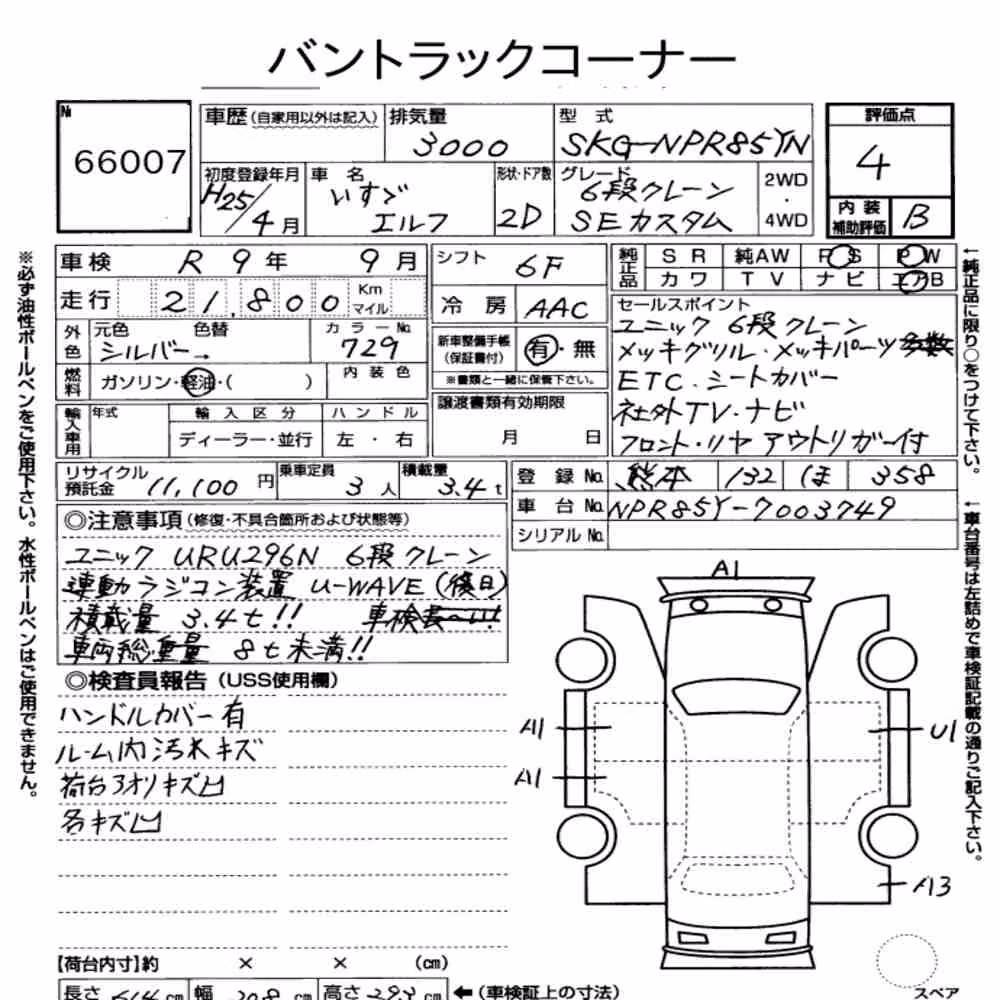 バントラックコーナー
№ 66007
車歴(自家用以外は記入) 排気量 3000 型式 SKG-NPR85YN 評価点 4
初度登録年月 H25/4月 車名 いすゞ エルフ 形状・ドア数 2D グレード 6段クレーン SEカスタム 2WD・4WD 内装補助評価 B
※必ず油性ボールペンをご使用下さい。水性ボールペンはご使用できません。
車検 R 9年 9月 シフト 6F
純正品 SR 純AW PS PW
カワ TV ナビ エアB
走行 21,800 Km マイル 冷房 AAC
外色 元色 シルバー→ 色替 カラーNo. 729
燃料 ガソリン・軽油・( ) 内装色
新車整備手帳(保証書付) 有・無
※書類と一緒に保管下さい。
輸入車用 年式 輸入区分 ディーラー・並行 ハンドル 左・右
譲渡書類有効期限 月 日
セールスポイント
ユニック 6段クレーン
メッキグリル・メッキパーツ多数
ETC.シートカバー
社外TV・ナビ
フロント・リヤ アウトリガー付
←純正品に限り○をつけて下さい。
リサイクル預託金 11,100円 乗車定員 3人 積載量 3.4t
登録No. 熊本 132 ほ 358
車台No. NPR85Y-7003749
シリアルNo.
←車台番号は左詰めで車検証記載の通りご記入下さい。
◎注意事項(修復・不具合箇所および状態等)
ユニック URU296N 6段クレーン
連動ラジコン装置 U-WAVE (後日)
積載量 3.4t!! 車検長〜い!!
車両総重量 8t未満!!
◎検査員報告(USS使用欄)
ハンドルカバー有
ルーム内汚れキズ
荷台アオリキズ凹
各キズ凹
A1
A1
U1
A1
A3
【荷台内寸】約 × × (cm)
長さ cm 幅 cm 高さ cm ←(車検証上の寸法)
スペア